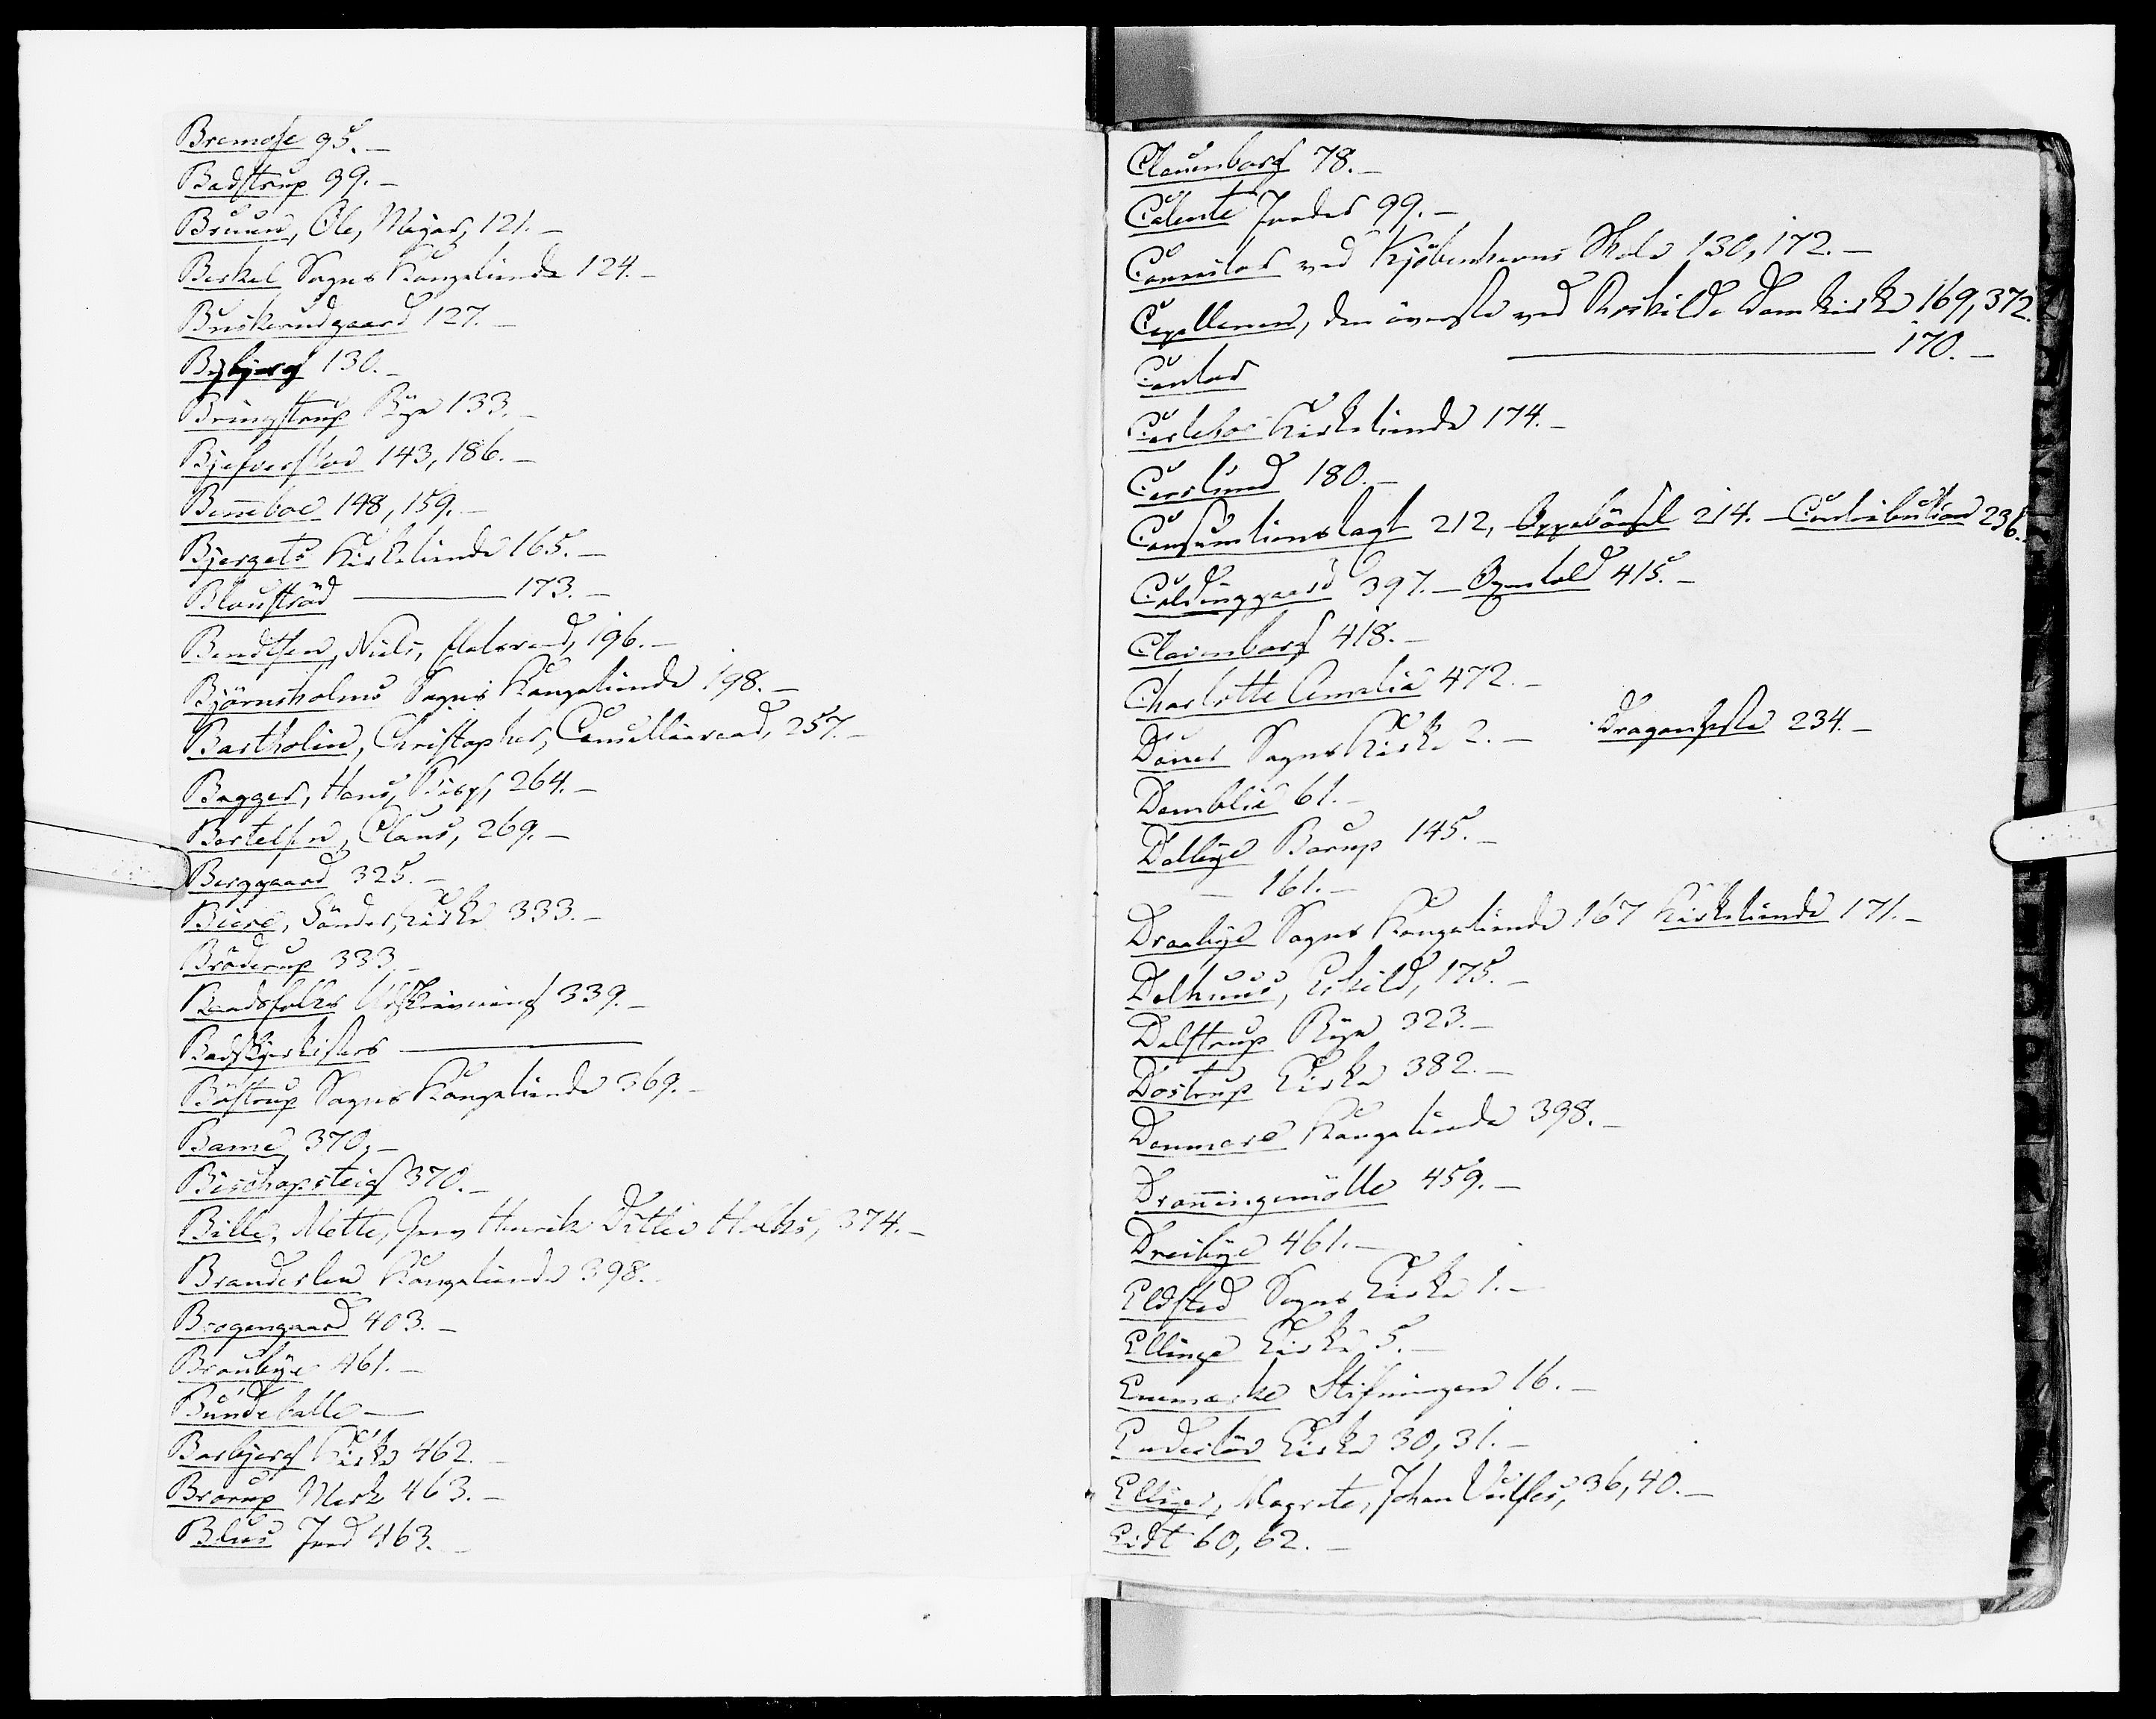 Bremose 95. –
Badstrup 39. –
Bruun, Ole, Majer, 121. –
Beskel Sogns Kongetiende 124. –
Buskerudgaard 127. –
Bybjerg 130. –
Bringstrup Bye 133. –
143, 186. –
Benneboe 148, 159. –
Bjergets Kirketiende 165. –
Blaustrød ——— 173. –
Bendtsen, Niels, Etatsraad, 196. –
Bjørnsholms Sogns Kongetiende 198. –
Bartholin, Christopher, Cancelliraad, 257. –
Bagger, Hans, Bisp, 264. –
Bertelsen, Claus, 269. –
Berggaard 325. –
Biere, Sønder, Kirke 333. –
Brøderup 333 –
339. –
Badskjerkisters ———
Bøstrup Sogns Kongetiende 369. –
Barne 370. –
Bischopsteig 370. –
Bille, Mette, Henrik Ditlev Holks, 374. –
Branderslew Kongetiende 398. –
Bragengaard 403. –
Braubye 461. –
Bundeballe —
Barbjerg Kirke 462. –
Brarup Mark 463. –
Blus Jord 463. –
Clausenborg 78. –
Calente Jorder 99. –
ved Kjøbenhavns Skole 130, 172. –
Capellanen, den øverste ved Roskilde Domkirke 169, 372.
Cantor ——— 170. –
Carleboe Kirketiende 174. –
Carslund 180. –
Consumtionslagt 212, Oppebørsel 214. – Contribution 236.
Coldinggaard 397. – Oxentold 415. –
Clavenborg 418. –
Charlotte Amalia 472. –
Døner Sogns Kirke 2. – Dragonheste 234. –
Damblie 61. –
Dalbye Barup 145. –
– 161. –
Draabye Sogns Kongetiende 167 Kirketiende 171. –
Dalhuus, Eskild, 175. –
Dalstrup Bye 323. –
Dostrup Kirke 382. –
Danmare Kongetiende 398. –
Dronningemølle 459. –
Dreibye 461. –
Eldsted Sogns Kirke 1. –
Ellinge Kirke 5. –
Enemærke Stifningen 16. –
Enderslöv Kirke 30, 31. –
Ellinger, Magrete, Johan Wulfes, 36, 40. –
Eidt 60, 62. –